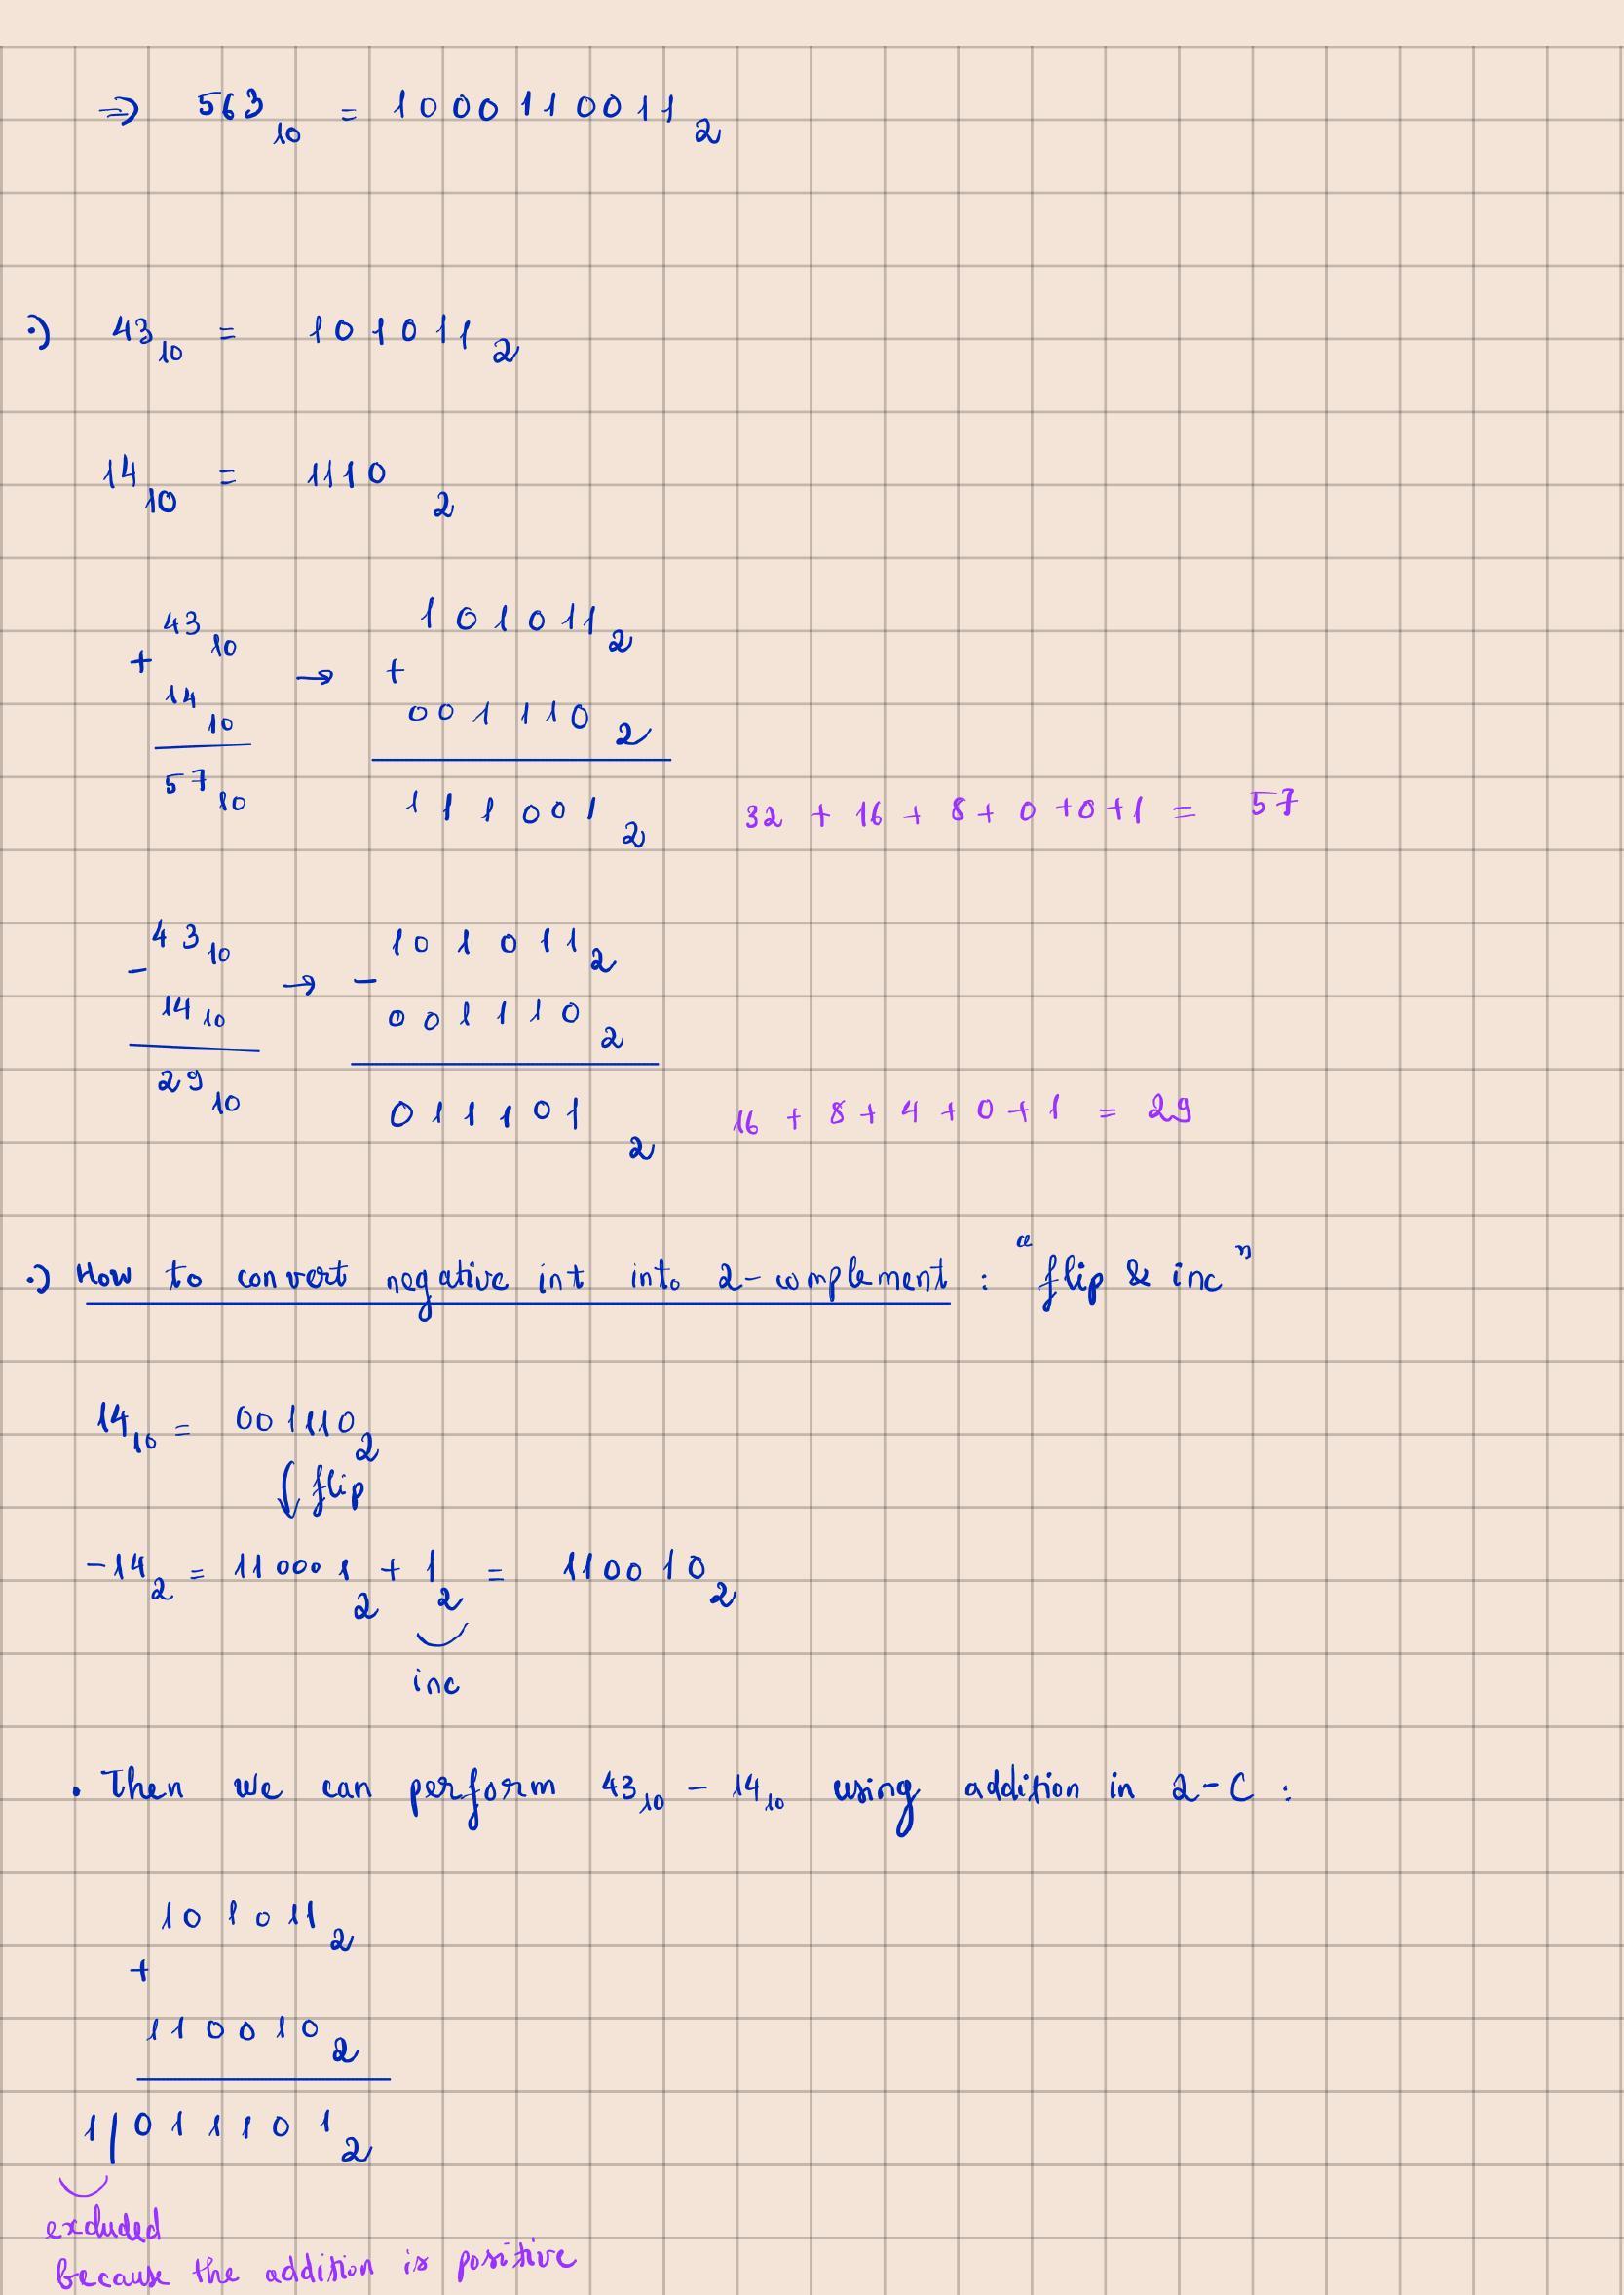 ⇒ 563₁₀ = 1000110011₂
·) 43₁₀ = 101011₂
14₁₀ = 1110₂
43₁₀ 101011₂
+ → +
14₁₀ 001110₂
57₁₀ 111001₂ 32 + 16 + 8 + 0 + 0 + 1 = 57
43₁₀ 101011₂
- → -
14₁₀ 001110₂
29₁₀ 011101₂ 16 + 8 + 4 + 0 + 1 = 29
·) How to convert negative int into 2-complement : "flip & inc"
14₁₀ = 001110₂
↓ flip
-14₂ = 110001₂ + 1₂ = 110010₂
inc
. Then we can perform 43₁₀ - 14₁₀ using addition in 2-C :
101011₂
+
110010₂
1|011101₂
excluded
because the addition is positive